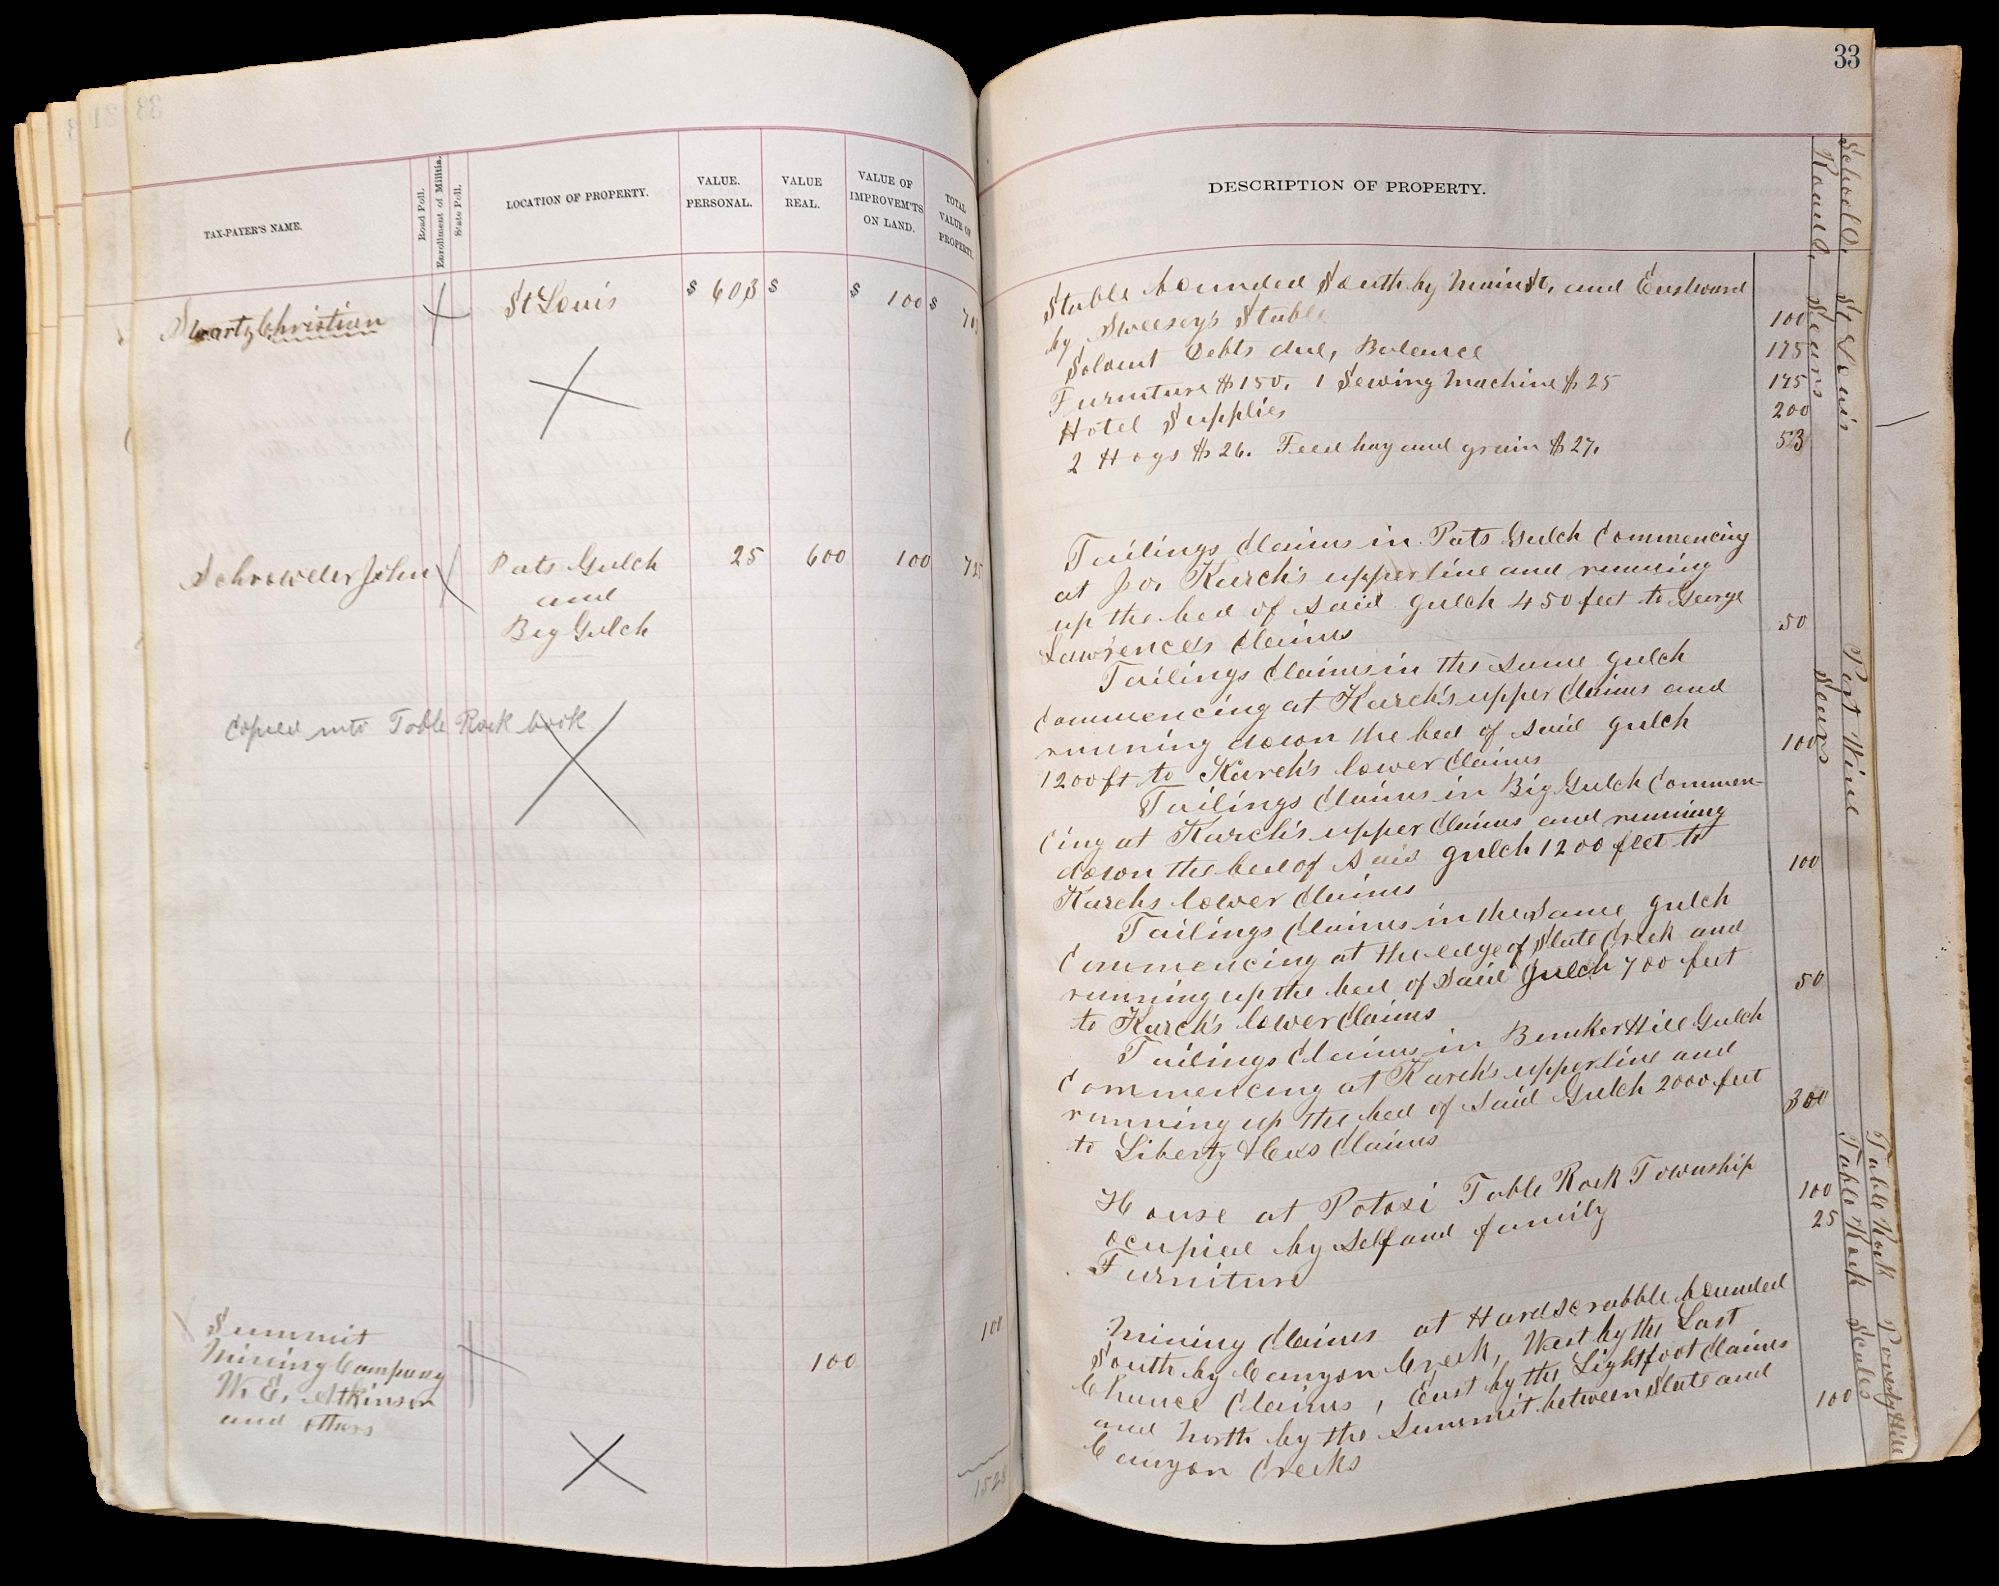 33
TAX-PAYER'S NAME.
Road Poll.
Enrollment of Militia.
State Poll.
LOCATION OF PROPERTY.
VALUE. PERSONAL.
VALUE REAL.
VALUE OF IMPROVEM'TS ON LAND.
TOTAL VALUE OF PROPERTY.
Swartz Christian St Louis $ 603 $ $ 100 $
Schroweder John Pats Gulch 25 600 100 725
and
Big Gulch
Copied into Table Rock book
Summit
Mining Company 100 100
W. E. Atkinson
and others
1528
33
DESCRIPTION OF PROPERTY.
School D. St Louis Port Wine Table Rock Poverty Hill
Road D. Sears Sears Table Rock Scales
Stable bounded South by Main St, and Eastward
by Sweesey's Stable 100
Solvent Debts due, Balance 175
Furniture $150. 1 Sewing Machine $25 175
Hotel Supplies 200
2 Hogs $26. Feed hay and grain $27. 53
Tailings Claims in Pats Gulch Commencing
at Jo. Karch's upper line and running
up the bed of said gulch 450 feet to George
Lawrence's Claims 50
Tailings Claims in the same gulch
Commencing at Karch's upper Claims and
running down the bed of said gulch
1200 ft to Karch's lower Claims 100
Tailings Claims in Big Gulch Commen-
cing at Karch's upper Claims and running
down the bed of said gulch 1200 feet to
Karchs lower Claims 100
Tailings Claims in the same gulch
Commencing at the edge of Slate Creek and
running up the bed of said gulch 700 feet
to Karch's lower Claims 50
Tailings Claims in Bunker Hill Gulch
Commencing at Karch's upper line and
running up the bed of said Gulch 2000 feet
to Liberty & Cos Claims 300
House at Potosi Table Rock Township
ocupied by self and family 100
Furniture 25
Mining Claims at Hardscrabble bounded
South by Canyon Creek, West by the Last
Chance Claims, East by the Lightfoot Claims
and North by the Summit between Slate and
Canyon Creeks 100